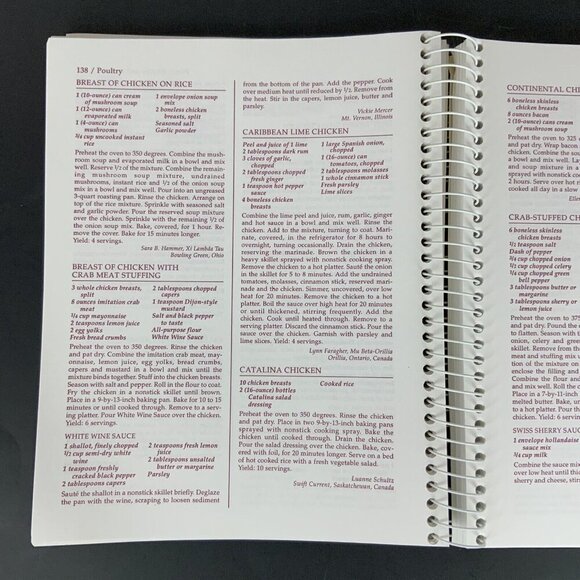 138 / Poultry
BREAST OF CHICKEN ON RICE
1 (10-ounce) can cream of mushroom soup
1 (12-ounce) can evaporated milk
1 (4-ounce) can mushrooms
3/4 cup uncooked instant rice
1 envelope onion soup mix
2 boneless chicken breasts, split
Seasoned salt
Garlic powder
Preheat the oven to 350 degrees. Combine the mush-
room soup and evaporated milk in a bowl and mix
well. Reserve 1/2 of the mixture. Combine the remain-
ing mushroom soup mixture, undrained
mushrooms, instant rice and 1/2 of the onion soup
mix in a bowl and mix well. Pour into an ungreased
3-quart roasting pan. Rinse the chicken. Arrange on
top of the rice mixture. Sprinkle with seasoned salt
and garlic powder. Pour the reserved soup mixture
over the chicken. Sprinkle with the remaining 1/2 of
the onion soup mix. Bake, covered, for 1 hour. Re-
move the cover. Bake for 15 minutes longer.
Yield: 4 servings.
Sara B. Hammer, Xi Lambda Tau
Bowling Green, Ohio
BREAST OF CHICKEN WITH
CRAB MEAT STUFFING
3 whole chicken breasts, split
8 ounces imitation crab meat
1/4 cup mayonnaise
2 teaspoons lemon juice
2 egg yolks
Fresh bread crumbs
2 tablespoons chopped capers
1 teaspoon Dijon-style mustard
Salt and black pepper to taste
All-purpose flour
White Wine Sauce
Preheat the oven to 350 degrees. Rinse the chicken
and pat dry. Combine the imitation crab meat, may-
onnaise, lemon juice, egg yolks, bread crumbs,
capers and mustard in a bowl and mix until the
mixture binds together. Stuff into the chicken breasts.
Season with salt and pepper. Roll in the flour to coat.
Fry the chicken in a nonstick skillet until brown.
Place in a 9-by-13-inch baking pan. Bake for 10 to 15
minutes or until cooked through. Remove to a serv-
ing platter. Pour White Wine Sauce over the chicken.
Yield: 6 servings.
WHITE WINE SAUCE
1 shallot, finely chopped
1/2 cup semi-dry white wine
1 teaspoon freshly cracked black pepper
2 tablespoons capers
2 teaspoons fresh lemon juice
2 tablespoons unsalted butter or margarine
Parsley
Sauté the shallot in a nonstick skillet briefly. Deglaze
the pan with the wine, scraping to loosen sediment
from the bottom of the pan. Add the pepper. Cook
over medium heat until reduced by 1/2. Remove from
the heat. Stir in the capers, lemon juice, butter and
parsley.
Vickie Mercer
Mt. Vernon, Illinois
CARIBBEAN LIME CHICKEN
Peel and juice of 1 lime
2 tablespoons dark rum
3 cloves of garlic, chopped
2 tablespoons chopped fresh ginger
1 teaspoon hot pepper sauce
4 boneless chicken breasts
1 large Spanish onion, chopped
1 (16-ounce) can tomatoes, chopped
2 tablespoons molasses
1 whole cinnamon stick
Fresh parsley
Lime slices
Combine the lime peel and juice, rum, garlic, ginger
and hot sauce in a bowl and mix well. Rinse the
chicken. Add to the mixture, turning to coat. Mari-
nate, covered, in the refrigerator for 8 hours to
overnight, turning occasionally. Drain the chicken,
reserving the marinade. Brown the chicken in a
heavy skillet sprayed with nonstick cooking spray.
Remove the chicken to a hot platter. Sauté the onion in
the skillet for 5 to 8 minutes. Add the undrained
tomatoes, molasses, cinnamon stick, reserved mari-
nade and the chicken. Simmer, uncovered, over low
heat for 20 minutes. Remove the chicken to a hot
platter. Boil the sauce over high heat for 10 minutes
or until thickened, stirring frequently. Add the
chicken. Cook until heated through. Remove to a
serving platter. Discard the cinnamon stick. Pour the
sauce over the chicken. Garnish with parsley and
lime slices. Yield: 4 servings.
Lynn Faragher, Mu Beta-Orillia
Orillia, Ontario, Canada
CATALINA CHICKEN
10 chicken breasts
2 (16-ounce) bottles Catalina salad dressing
Cooked rice
Preheat the oven to 350 degrees. Rinse the chicken
and pat dry. Place in two 9-by-13-inch baking pans
sprayed with nonstick cooking spray. Bake the
chicken until cooked through. Drain the chicken.
Pour the salad dressing over the chicken. Bake, cov-
ered with foil, for 20 minutes longer. Serve on a bed
of hot cooked rice with a fresh vegetable salad.
Yield: 10 servings.
Luanne Schultz
Swift Current, Saskatchewan, Canada
CONTINENTAL CH
6 boneless skinless
chicken breasts
8 ounces bacon
2 (10-ounce) cans
of mushroom soup
Preheat the oven to 325
pat dry. Wrap bacon
CRAB-STUFFED C
6 boneless skinless
chicken breasts
1/2 teaspoon salt
Dash of pepper
1/4 cup chopped onion
1/2 cup chopped celery
1/4 cup chopped green
bell pepper
3 tablespoons butter or
margarine
3 tablespoons sherry or
lemon juice
Preheat the oven to 375
SWISS SHERRY SAUC
1 envelope hollandaise
sauce mix
3/4 cup milk
Combine the sauce mix
over low heat until thi
sherry and cheese, stirr